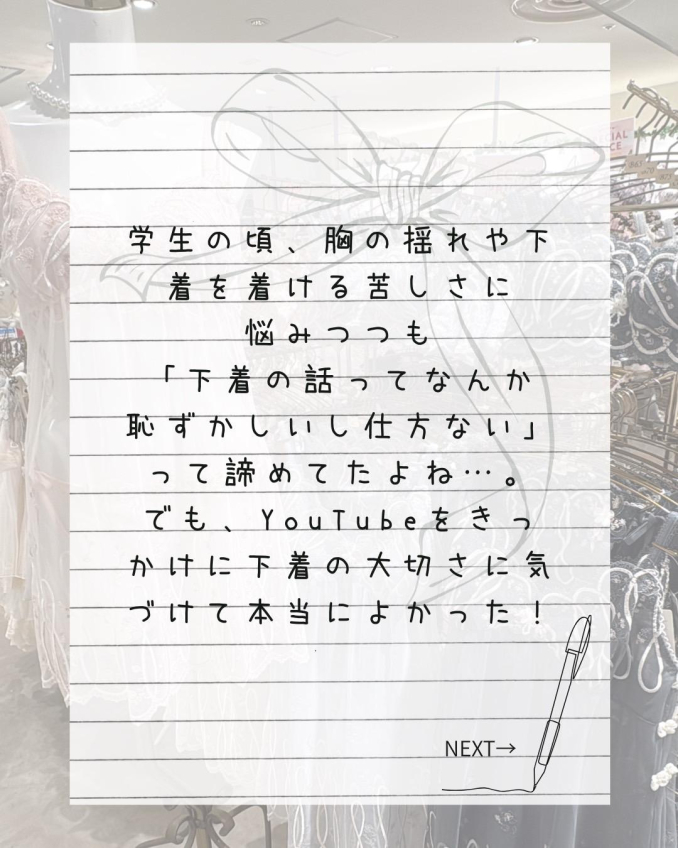 学生の頃、胸の揺れや下
着を着ける苦しさに
悩みつつも
「下着の話ってなんか
恥ずかしいし仕方ない」
って諦めてたよね…。
でも、YouTubeをきっ
かけに下着の大切さに気
づけて本当によかった！
NEXT→